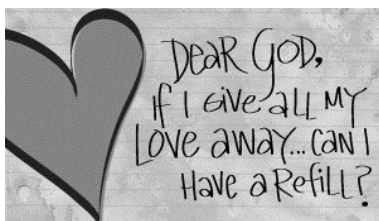 DEAR GOD,
If I GIVE ALL MY
LOVE AWAY...CAN I
HAVE A REFILL?